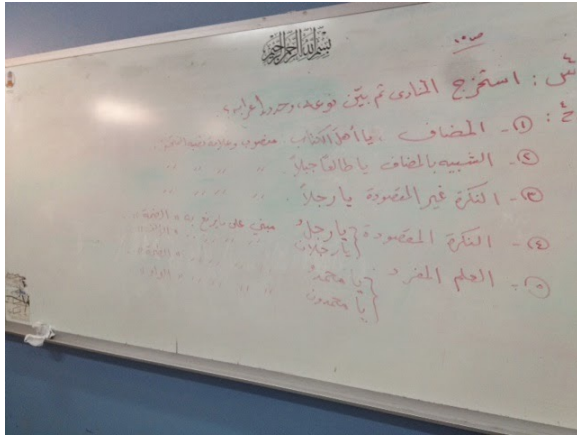 بسم الله الرحمن الرحيم
س: استخرج المنادى ثم بيّن نوعه، وحدد إعرابه؟
ج:
١- المضاف. يا أهلَ الكتاب. منصوب وعلامة نصبه الفتحة.
٢- الشبيه بالمضاف يا طالعًا جبلًا " " " "
٣- النكرة غير المقصودة يا رجلًا. " " " "
٤- النكرة المقصودة { يا رجلُ مبني على ما يرفع به " الضمة "
يا رجلان " " " " "
٥- العلم المفرد { يا محمدُ " " " " " الضمة "
يا محمدون " " " " " الواو "